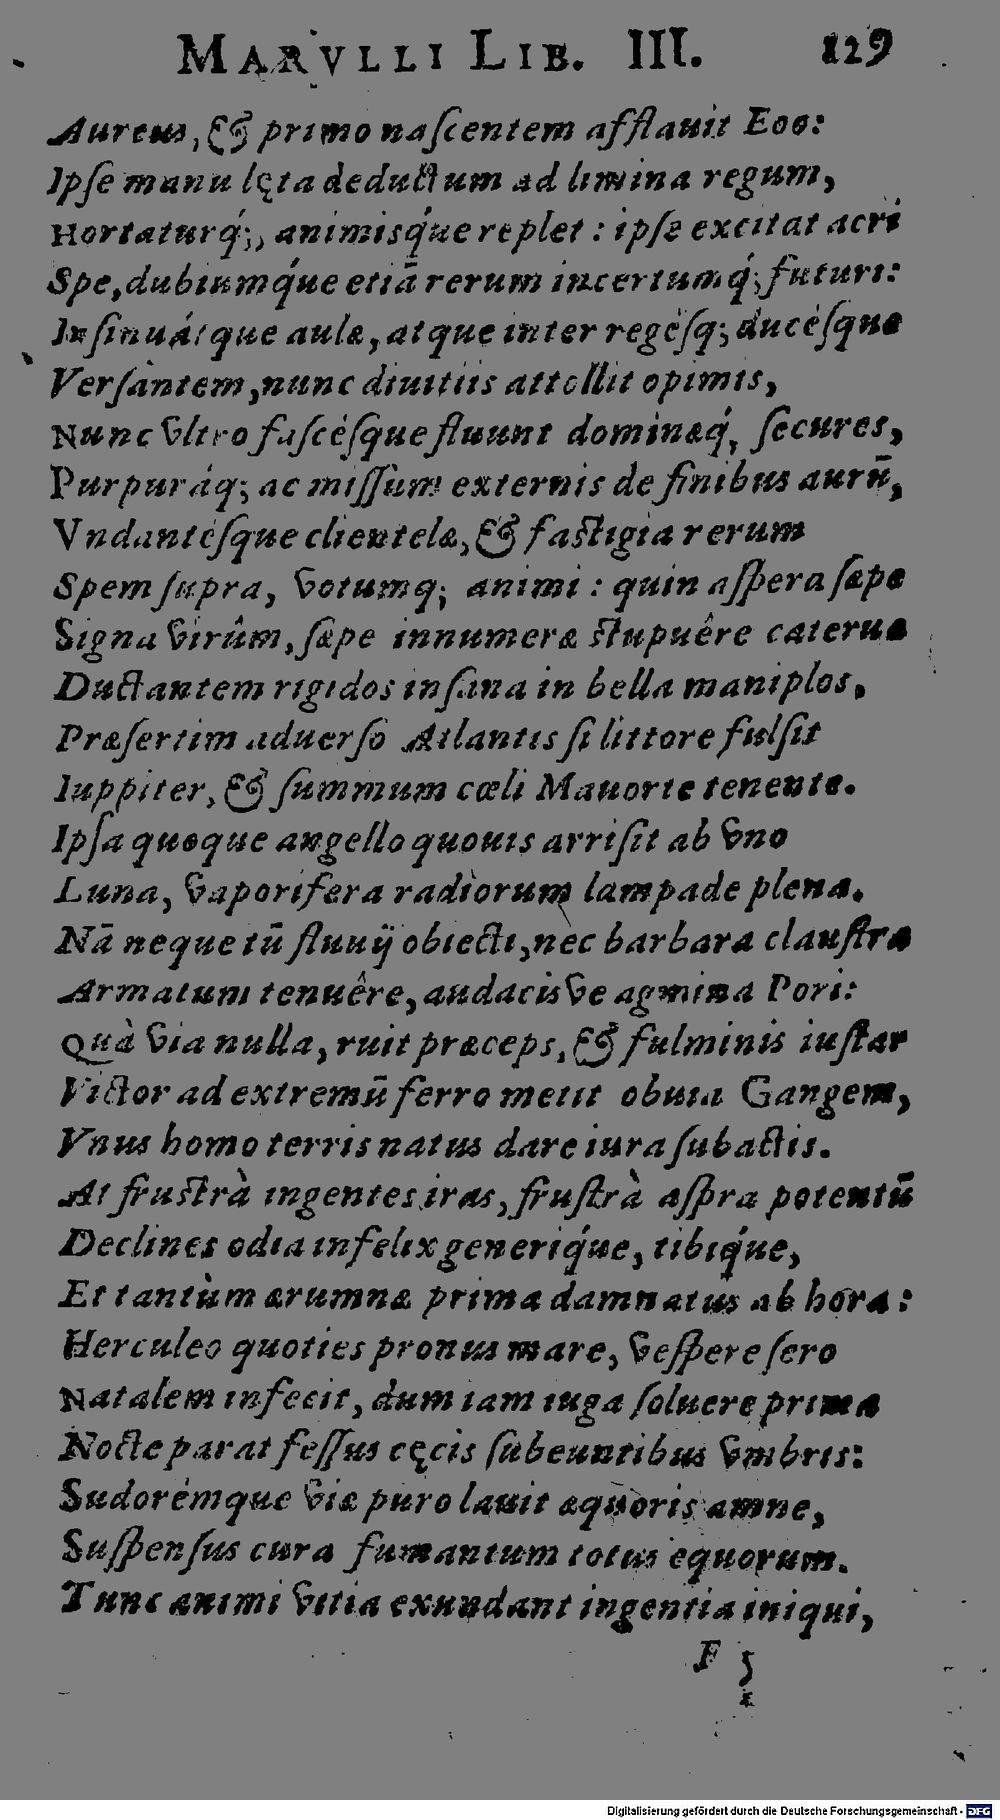 MARVLLI LIB. III. 129
Aureus, & primo naſcentem afflauit Eoo:
Ipſe manu lęta deductum ad limina regum,
Hortaturq́;, animisq́ue replet : ipſe excitat acri
Spe, dubiumq́ue etiā rerum incertumq́; futuri:
Inſinuátque aulæ, atque inter regéſq; ducéſque
Verſantem, nunc diuitiis attollit opimis,
Nunc vltro faſcéſque fluunt dominæq́, ſecures,
Purpuráq; ac miſſum externis de finibus aurū,
Vndantéſque clientelæ, & faſtigia rerum
Spem ſupra, votumq; animi : quin aſpera ſæpe
Signa virûm, ſæpe innumeræ ſtupuêre cateruæ
Ductantem rigidos inſana in bella maniplos,
Præſertim aduerſo Atlantis ſi littore fulſit
Iuppiter, & ſummum cœli Mauorte tenente.
Ipſa quoque angello quouis arriſit ab vno
Luna, vaporifera radiorum lampade plena.
Nā neque tū fluuij obiecti, nec barbara clauſtra
Armatum tenuêre, audacisve agmina Pori:
Quà via nulla, ruit præceps, & fulminis iuſtar
Victor ad extremū ferro metit obuia Gangem,
Vnus homo terris natus dare iura ſubactis.
At fruſtrà ingentes iras, fruſtrà aſpra potentū
Declines odia infelix generiq́ue, tibiq́ue,
Et tantùm ærumnæ prima damnatus ab hora:
Herculeo quoties pronus mare, veſpere ſero
Natalem infecit, dum iam iuga ſoluere prima
Nocte parat feſſus cęcis ſubeuntibus vmbris:
Sudorémque viæ puro lauit æquoris amne,
Suſpenſus cura fumantum totus equorum.
Tunc animi vitia exundant ingentia iniqui,
F 5
Digitalisierung gefördert durch die Deutsche Forschungsgemeinschaft - DFG